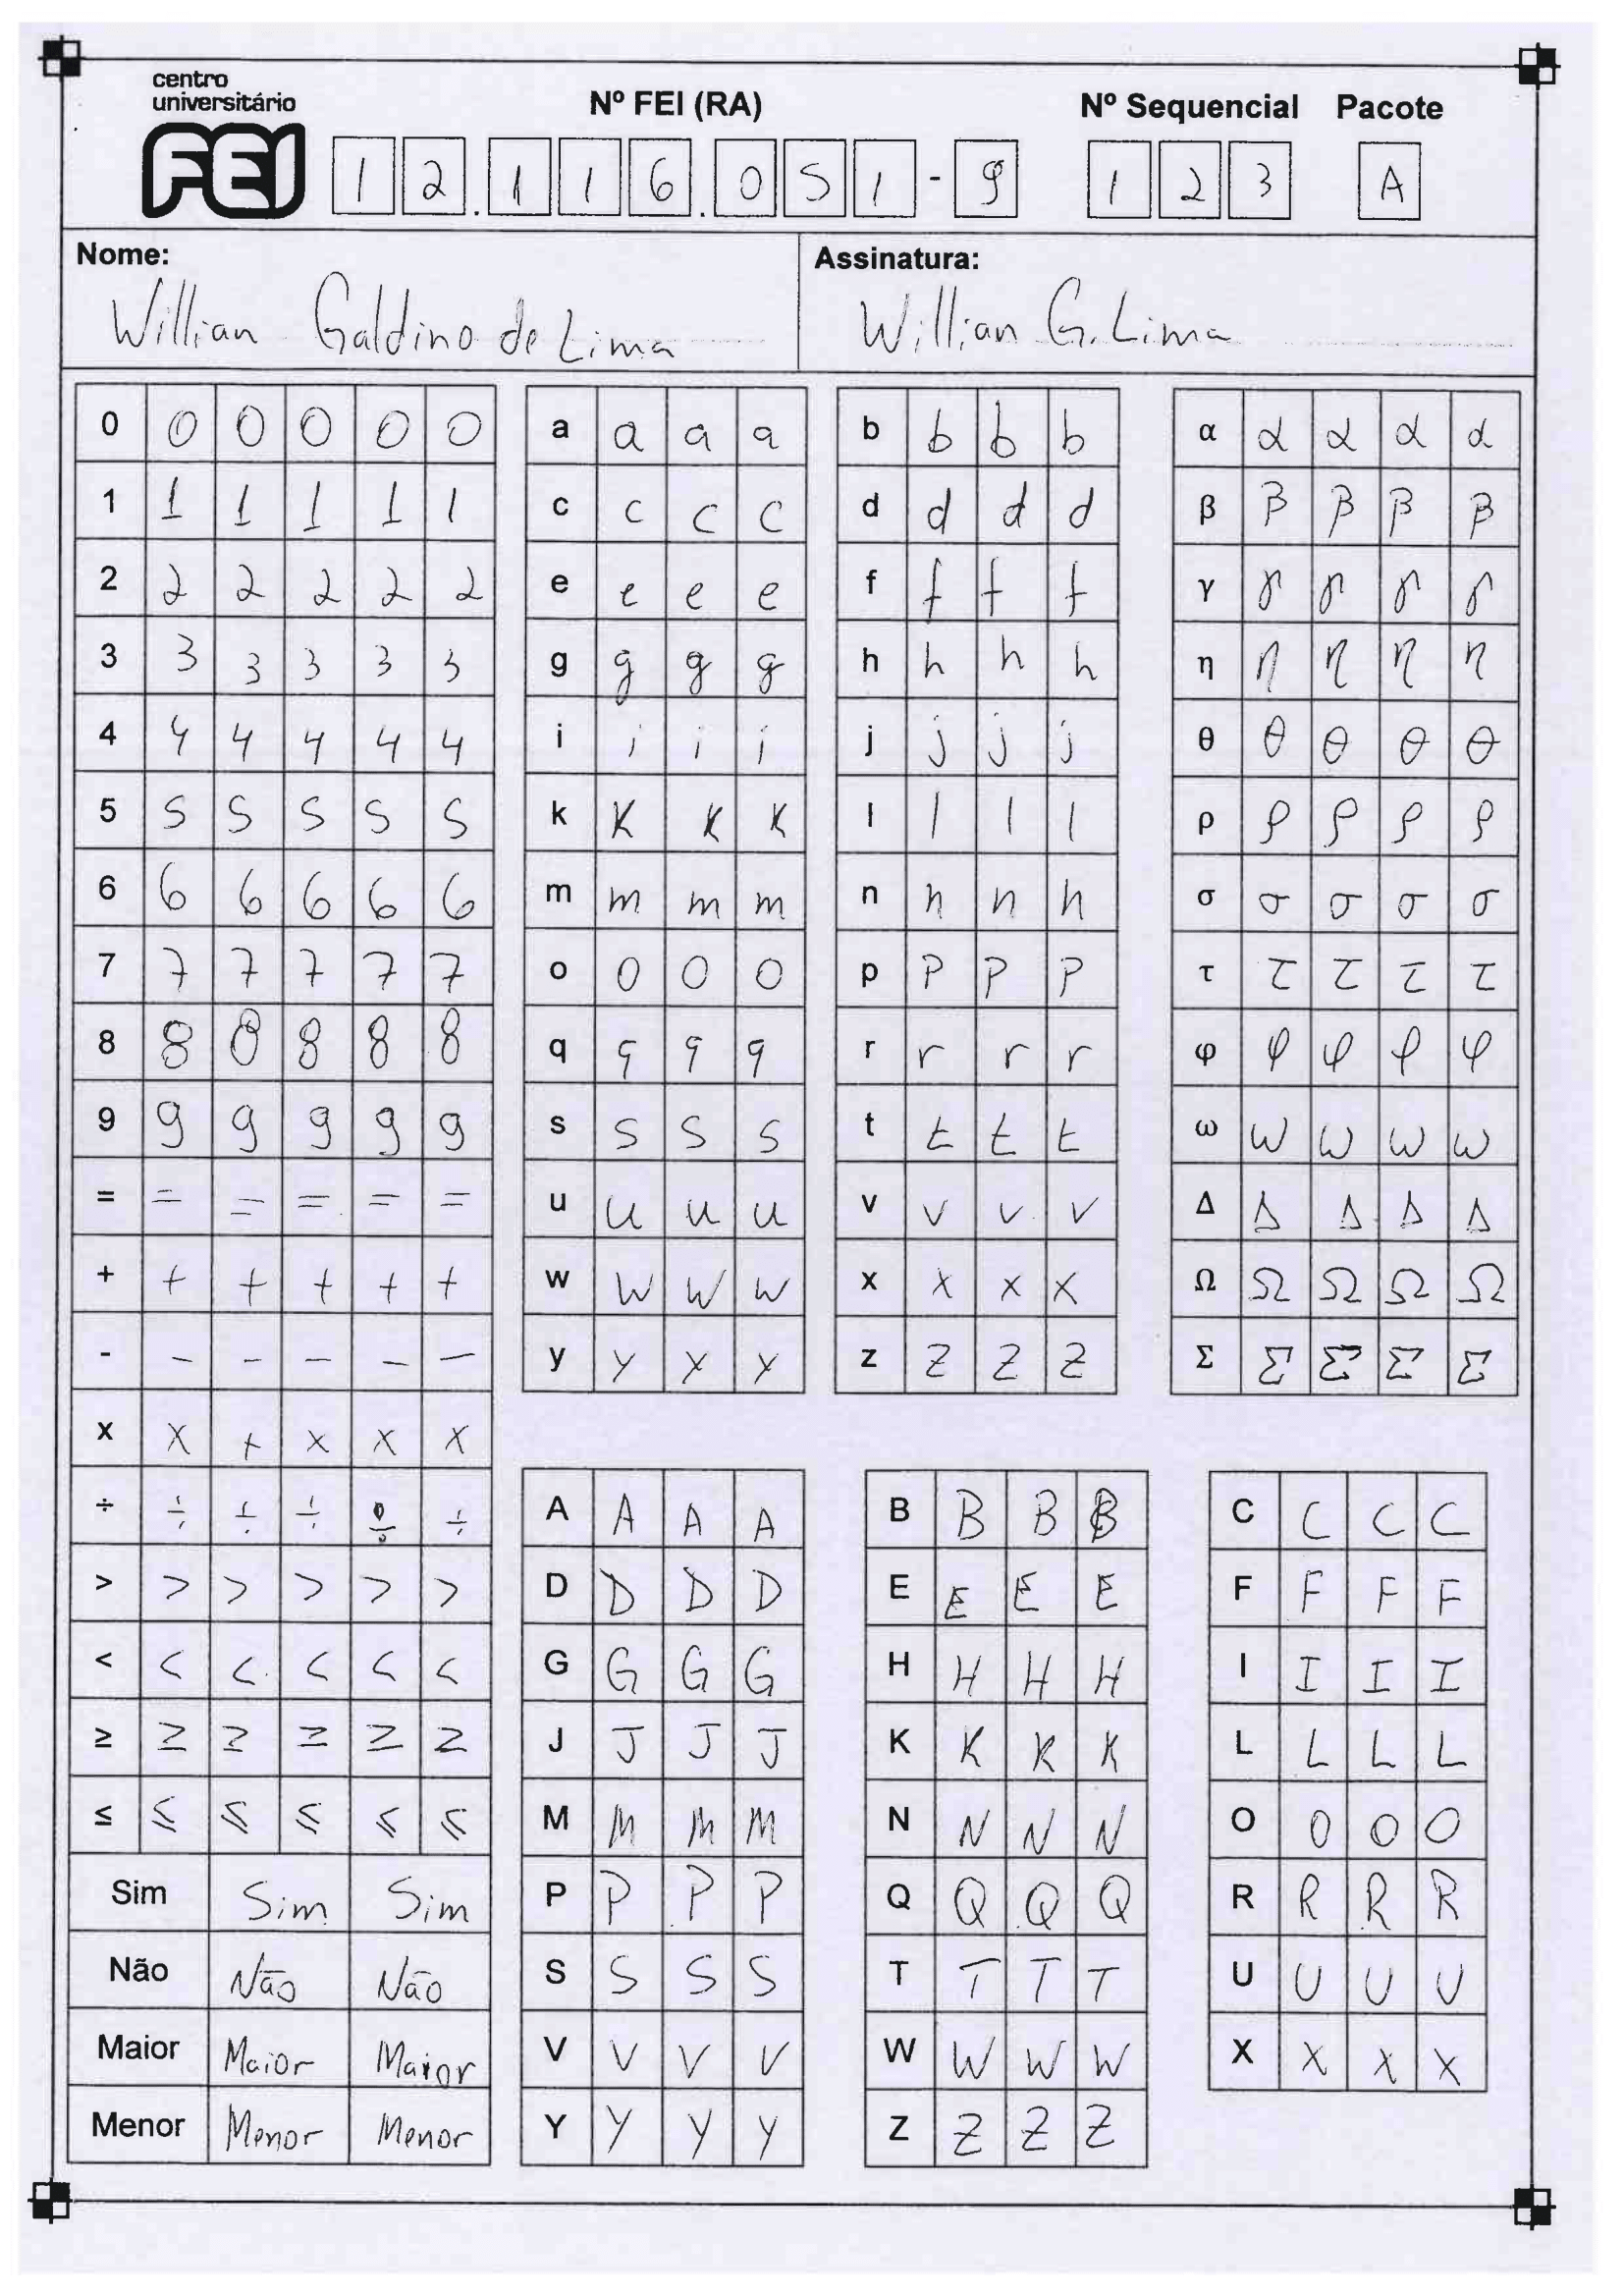 centro
universitário
FEI
Nº FEI (RA)
Nº Sequencial Pacote
12.116.051-9
123 A
Nome:
Willian Galdino de Lima
Assinatura:
Willian G. Lima
0 0 0 0 0 0
1 1 1 1 1 1
2 2 2 2 2 2
3 3 3 3 3 3
4 4 4 4 4 4
5 5 5 5 5 5
6 6 6 6 6 6
7 7 7 7 7 7
8 8 8 8 8 8
9 9 9 9 9 9
= = = = = =
+ + + + + +
- - - - - -
x x x x x x
÷ ÷ ÷ ÷ ÷ ÷
> > > > > >
< < < < < <
≥ ≥ ≥ ≥ ≥ ≥
≤ ≤ ≤ ≤ ≤ ≤
Sim Sim Sim
Não Não Não
Maior Maior Maior
Menor Menor Menor
a a a a
c c c c
e e e e
g g g g
i i i i
k k k k
m m m m
o o o o
q q q q
s s s s
u u u u
w w w w
y y y y
b b b b
d d d d
f f f f
h h h h
j j j j
l l l l
n n n n
p p p p
r r r r
t t t t
v v v v
x x x x
z z z z
α α α α α
β β β β β
γ γ γ γ γ
η η η η η
θ θ θ θ θ
ρ ρ ρ ρ ρ
σ σ σ σ σ
τ τ τ τ τ
φ φ φ φ φ
ω ω ω ω ω
Δ Δ Δ Δ Δ
Ω Ω Ω Ω Ω
Σ Σ Σ Σ Σ
A A A A
D D D D
G G G G
J J J J
M M M M
P P P P
S S S S
V V V V
Y Y Y Y
B B B B
E E E E
H H H H
K K K K
N N N N
Q Q Q Q
T T T T
W W W W
Z Z Z Z
C C C C
F F F F
I I I I
L L L L
O O O O
R R R R
U U U U
X X X X